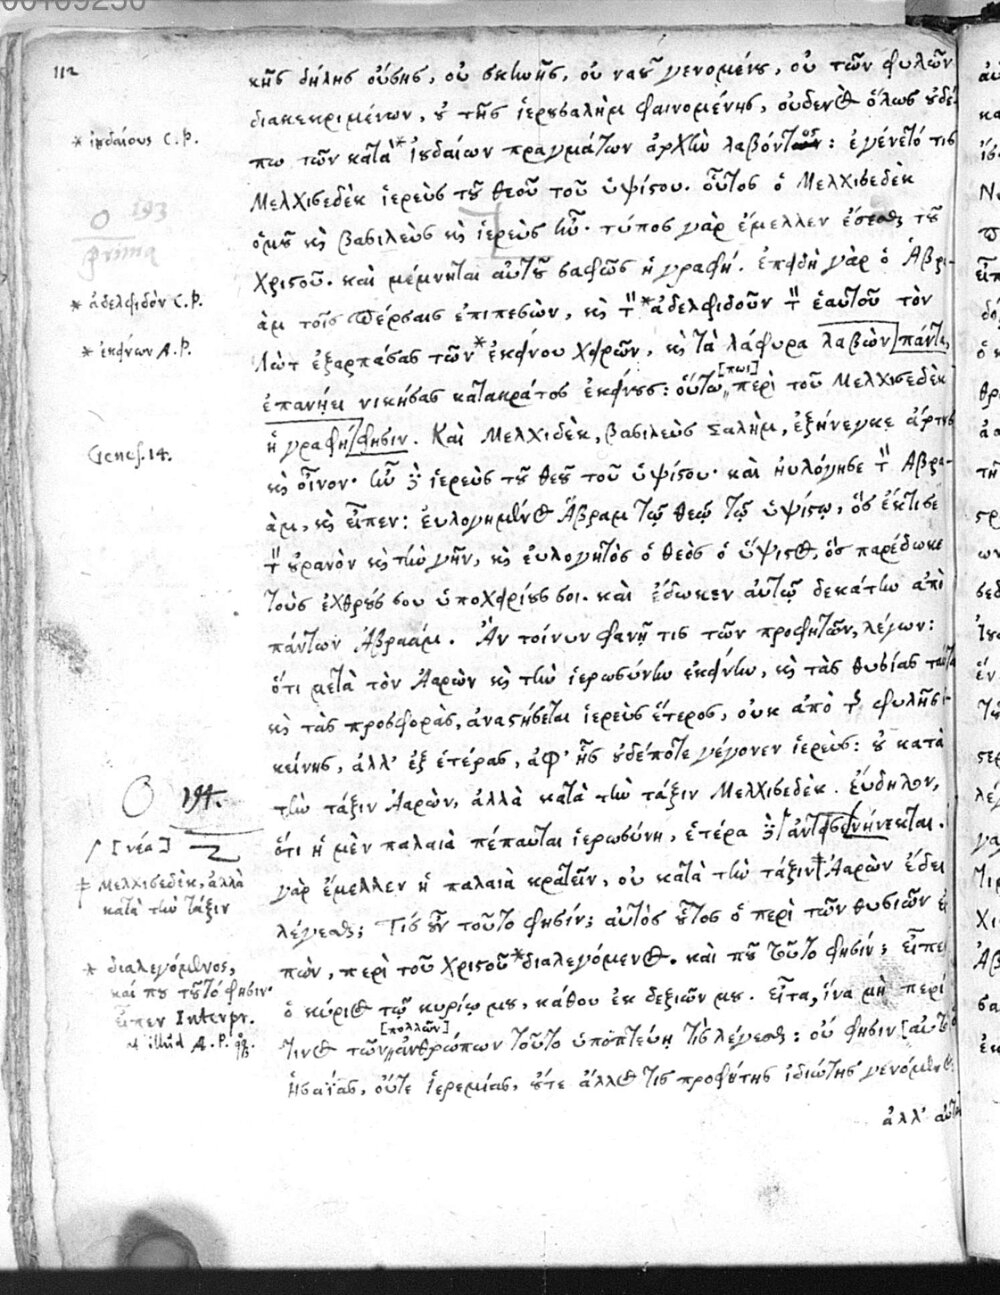 112
κῆς δήλης οὔσης, οὐ σκηνῆς, οὐ ναοῦ γενομένου, οὐ τῶν φυλῶν
διακεκριμένων, οὐ τῆς ἱερουσαλὴμ φαινομένης, οὐδενὸς ὅλως οὐδέ
* ἰουδαίους C. P.
πω τῶν κατὰ * ἰουδαίων πραγμάτων ἀρχὴν λαβόντων: ἐγένετό τις
Μελχισεδὲκ ἱερεὺς τοῦ θεοῦ τοῦ ὑψίστου. οὗτος ὁ Μελχισεδὲκ
193
prima
ὁμοῦ καὶ βασιλεὺς καὶ ἱερεὺς ἦν· τύπος γὰρ ἔμελλεν ἔσεσθαι τοῦ
Χριστοῦ. καὶ μέμνηται αὐτοῦ σαφῶς ἡ γραφή. ἐπειδὴ γὰρ ὁ Ἀβρα-
* ἀδελφιδὸν C. P.
ὰμ τοῖς Πέρσαις ἐπιπεσὼν, καὶ τὸν * ἀδελφιδοῦν τὸν ἑαυτοῦ τὸν
* ἐκείνων A. P.
Λὼτ ἐξαρπάσας τῶν * ἐκείνου χειρῶν, καὶ τὰ λάφυρα λαβὼν πάντα,
ἐπανῄει νικήσας κατακράτος ἐκείνους: οὕτω [πως] περὶ τοῦ Μελχισεδὲκ
Genes. 14.
ἡ γραφή φησιν. Καὶ Μελχιδὲκ, βασιλεὺς Σαλὴμ, ἐξήνεγκε ἄρτους
καὶ οἶνον· ἦν δὲ ἱερεὺς τοῦ θεοῦ τοῦ ὑψίστου· καὶ ηὐλόγησε τὸν Ἀβρα-
ὰμ, καὶ εἶπεν: εὐλογημένος Ἄβραμ τῷ θεῷ τῷ ὑψίστῳ, ὃς ἔκτισε
τὸν οὐρανὸν καὶ τὴν γῆν, καὶ εὐλογητὸς ὁ θεὸς ὁ ὕψιστος, ὃς παρέδωκε
τοὺς ἐχθρούς σου ὑποχειρίους σοι. καὶ ἔδωκεν αὐτῷ δεκάτην ἀπὸ
πάντων Ἀβραάμ. Ἂν τοίνυν φανῇ τις τῶν προφητῶν, λέγων:
ὅτι μετὰ τὸν Ἀαρὼν καὶ τὴν ἱερωσύνην ἐκείνην, καὶ τὰς θυσίας ταύτας
καὶ τὰς προσφορὰς, ἀναστήσεται ἱερεὺς ἕτερος, οὐκ ἀπὸ τῆς φυλῆς ἐ-
κείνης, ἀλλ' ἐξ ἑτέρας, ἀφ' ἧς οὐδέποτε γέγονεν ἱερεύς: οὐ κατὰ
194.
τὴν τάξιν Ἀαρὼν, ἀλλὰ κατὰ τὴν τάξιν Μελχισεδὲκ. εὔδηλον,
[νέα]
ὅτι ἡ μὲν παλαιὰ πέπαυται ἱερωσύνη, ἑτέρα δὲ ἀντεισενήνεκται.
‡ Μελχισεδὲκ, ἀλλὰ
κατὰ τὴν τάξιν
γὰρ ἔμελλεν ἡ παλαιὰ κρατεῖν, οὐ κατὰ τὴν τάξιν ‡ Ἀαρὼν ἔδει
λέγεσθαι; Τίς οὖν τοῦτο φησίν; αὐτὸς οὗτος ὁ περὶ τῶν θυσιῶν εἰ
* διαλεγόμενος,
καὶ ποῦ τοῦτό φησιν·
εἶπεν Interpr.
et illud A. P.
πὼν, περὶ τοῦ Χριστοῦ * διαλεγόμενος. καὶ ποῦ τοῦτο φησίν; εἶπεν
ὁ κύριος τῷ κυρίῳ μου, κάθου ἐκ δεξιῶν μου. εἶτα, ἵνα μὴ περί
τινος τῶν [πολλῶν] ἀνθρώπων τοῦτο ὑποπτεύῃ τις λέγεσθαι: οὔ φησιν [αὐτὸ
Ἡσαΐας, οὔτε Ἱερεμίας, οὔτε ἄλλος τις προφήτης ἰδιώτης γενόμενος.
ἀλλ' αὐτὸ